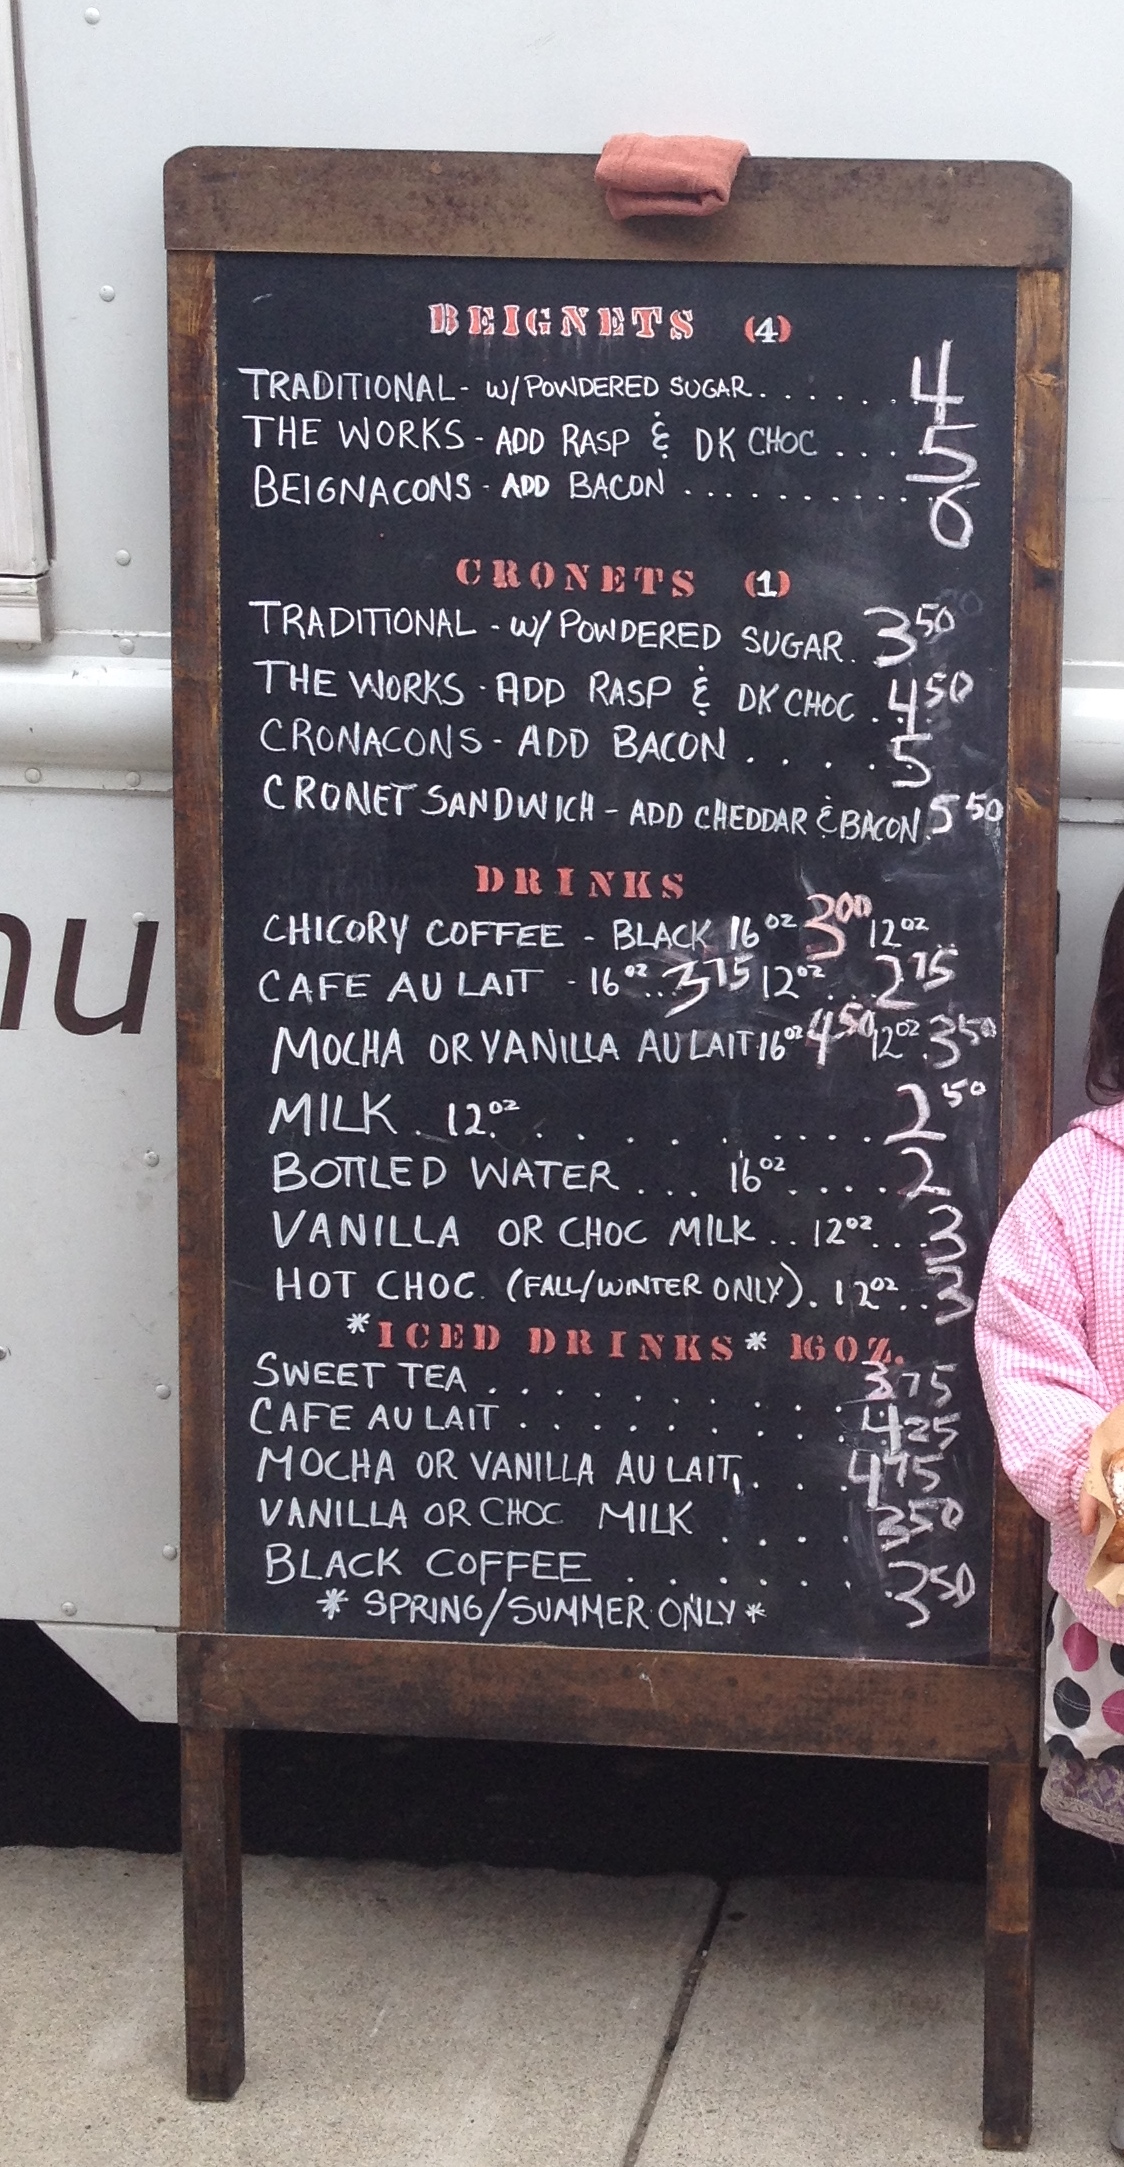 BEIGNETS (4)
TRADITIONAL - W/POWDERED SUGAR. . . . . . . 4
THE WORKS - ADD RASP & DK CHOC . . . 5
BEIGNACONS - ADD BACON . . . . . . . . . . 6
CRONETS (1)
TRADITIONAL - W/ POWDERED SUGAR. 3 50
THE WORKS - ADD RASP & DK CHOC . 4 50
CRONACONS - ADD BACON . . . . . 5
CRONET SANDWICH - ADD CHEDDAR & BACON. 5 50
DRINKS
CHICORY COFFEE - BLACK 16 oz 3 00 12 oz . .
CAFE AU LAIT - 16 oz . . 3 75 12 oz . . . 2 75
MOCHA OR VANILLA AU LAIT 16 oz 4 50 12 oz . 3 50
MILK . 12 oz . . . . . . . . . . 2 50
BOTTLED WATER . . . 16 oz . . . . 2
VANILLA OR CHOC MILK . . 12 oz . . . 3
HOT CHOC. (FALL/WINTER ONLY). 12 oz . . 3
*ICED DRINKS* 16 OZ.
SWEET TEA . . . . . . . . . . 3 75
CAFE AU LAIT . . . . . . . . . 4 25
MOCHA OR VANILLA AU LAIT, . . . 4 75
VANILLA OR CHOC MILK . . . . 3 50
BLACK COFFEE . . . . . . . 3 50
* SPRING/SUMMER ONLY *
nu